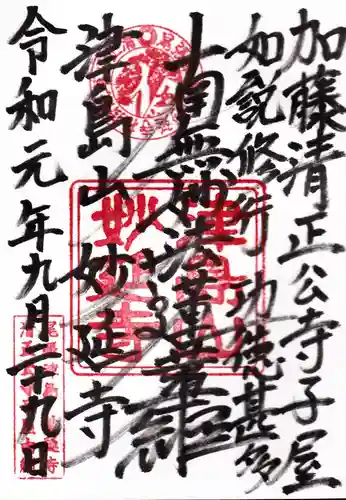 加藤清正公寺子屋
如説修行功徳甚多
南無妙法蓮華経
津島山妙延寺
令和元年九月二十九日
津島山
妙延寺